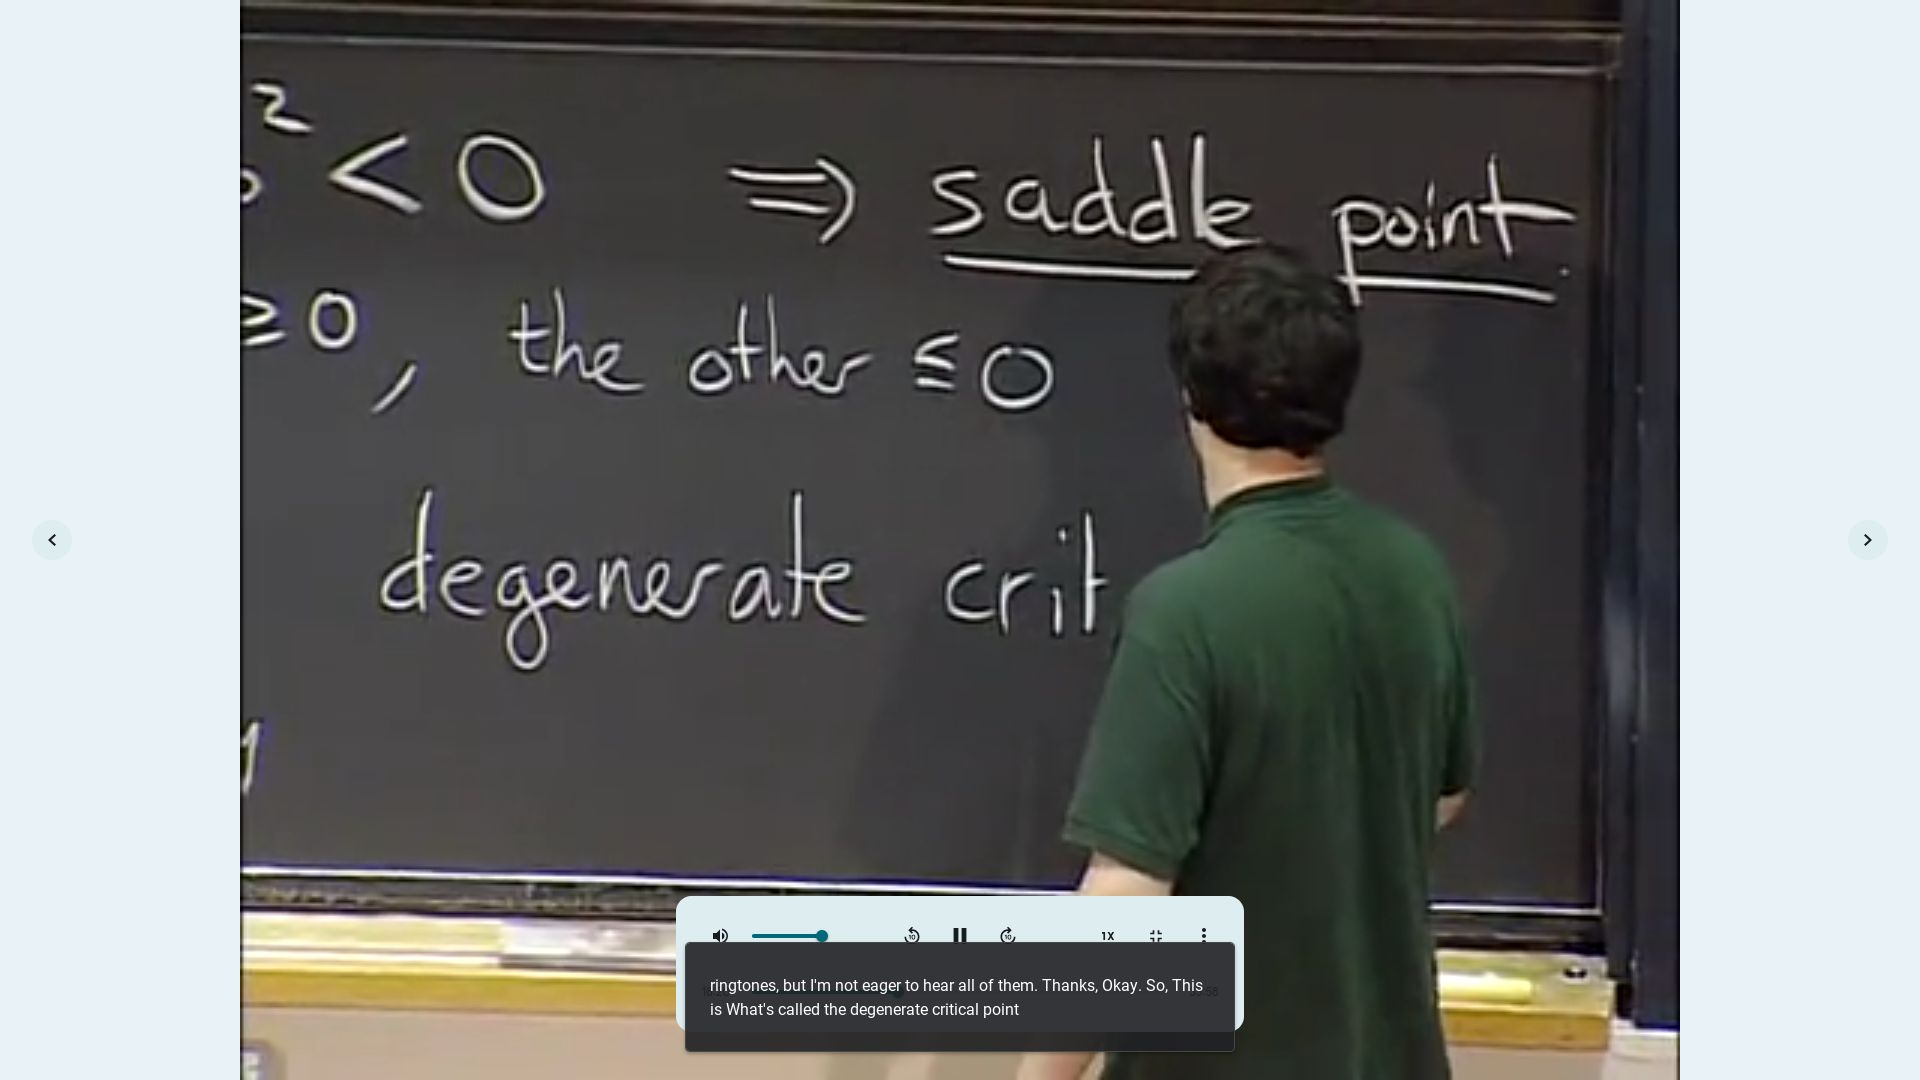 ² < 0 ⇒ saddle point.
≥ 0, the other ≤ 0
degenerate crit
1X
ringtones, but I'm not eager to hear all of them. Thanks, Okay. So, This
is What's called the degenerate critical point